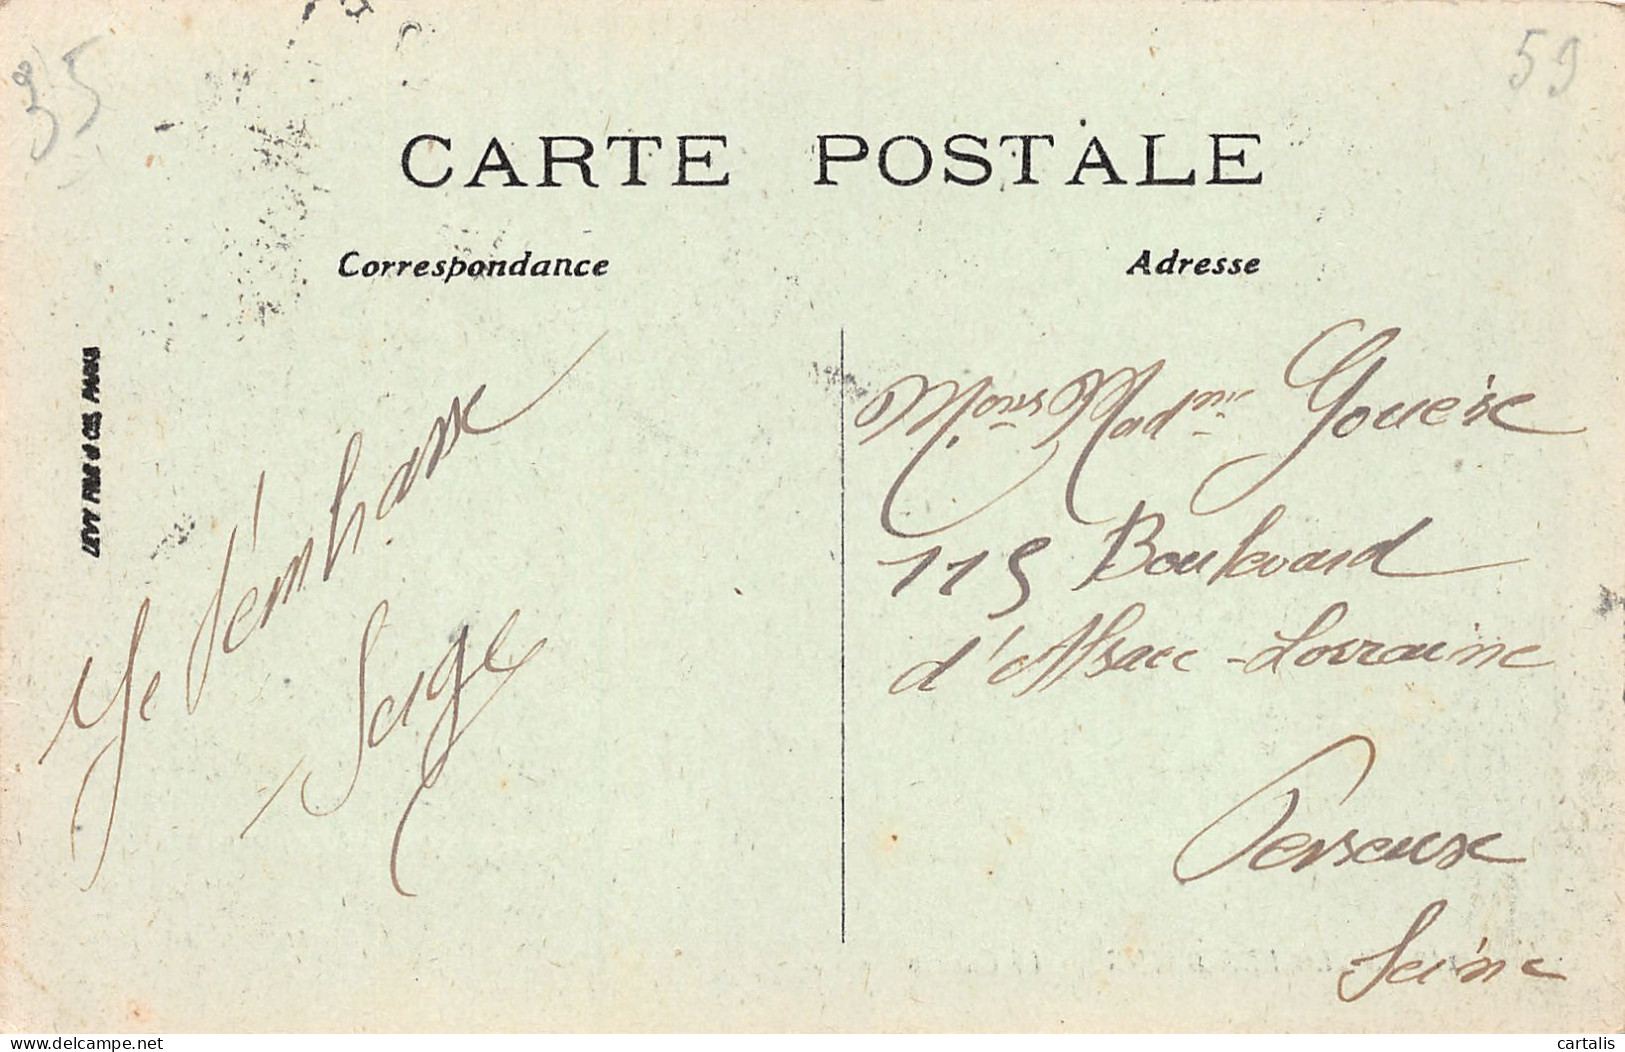 35
59
CARTE POSTALE
Correspondance
Adresse
LÉVY FILS & CIE, PARIS
Je t'embrasse
Serge
Mons Madme Goueix
115 Boulevard
d'Alsace-Lorraine
Perreux
Seine
www.delcampe.net
cartalis